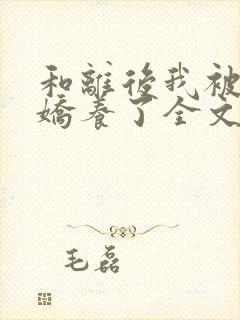 和離後我被
嬌養了全文
毛磊